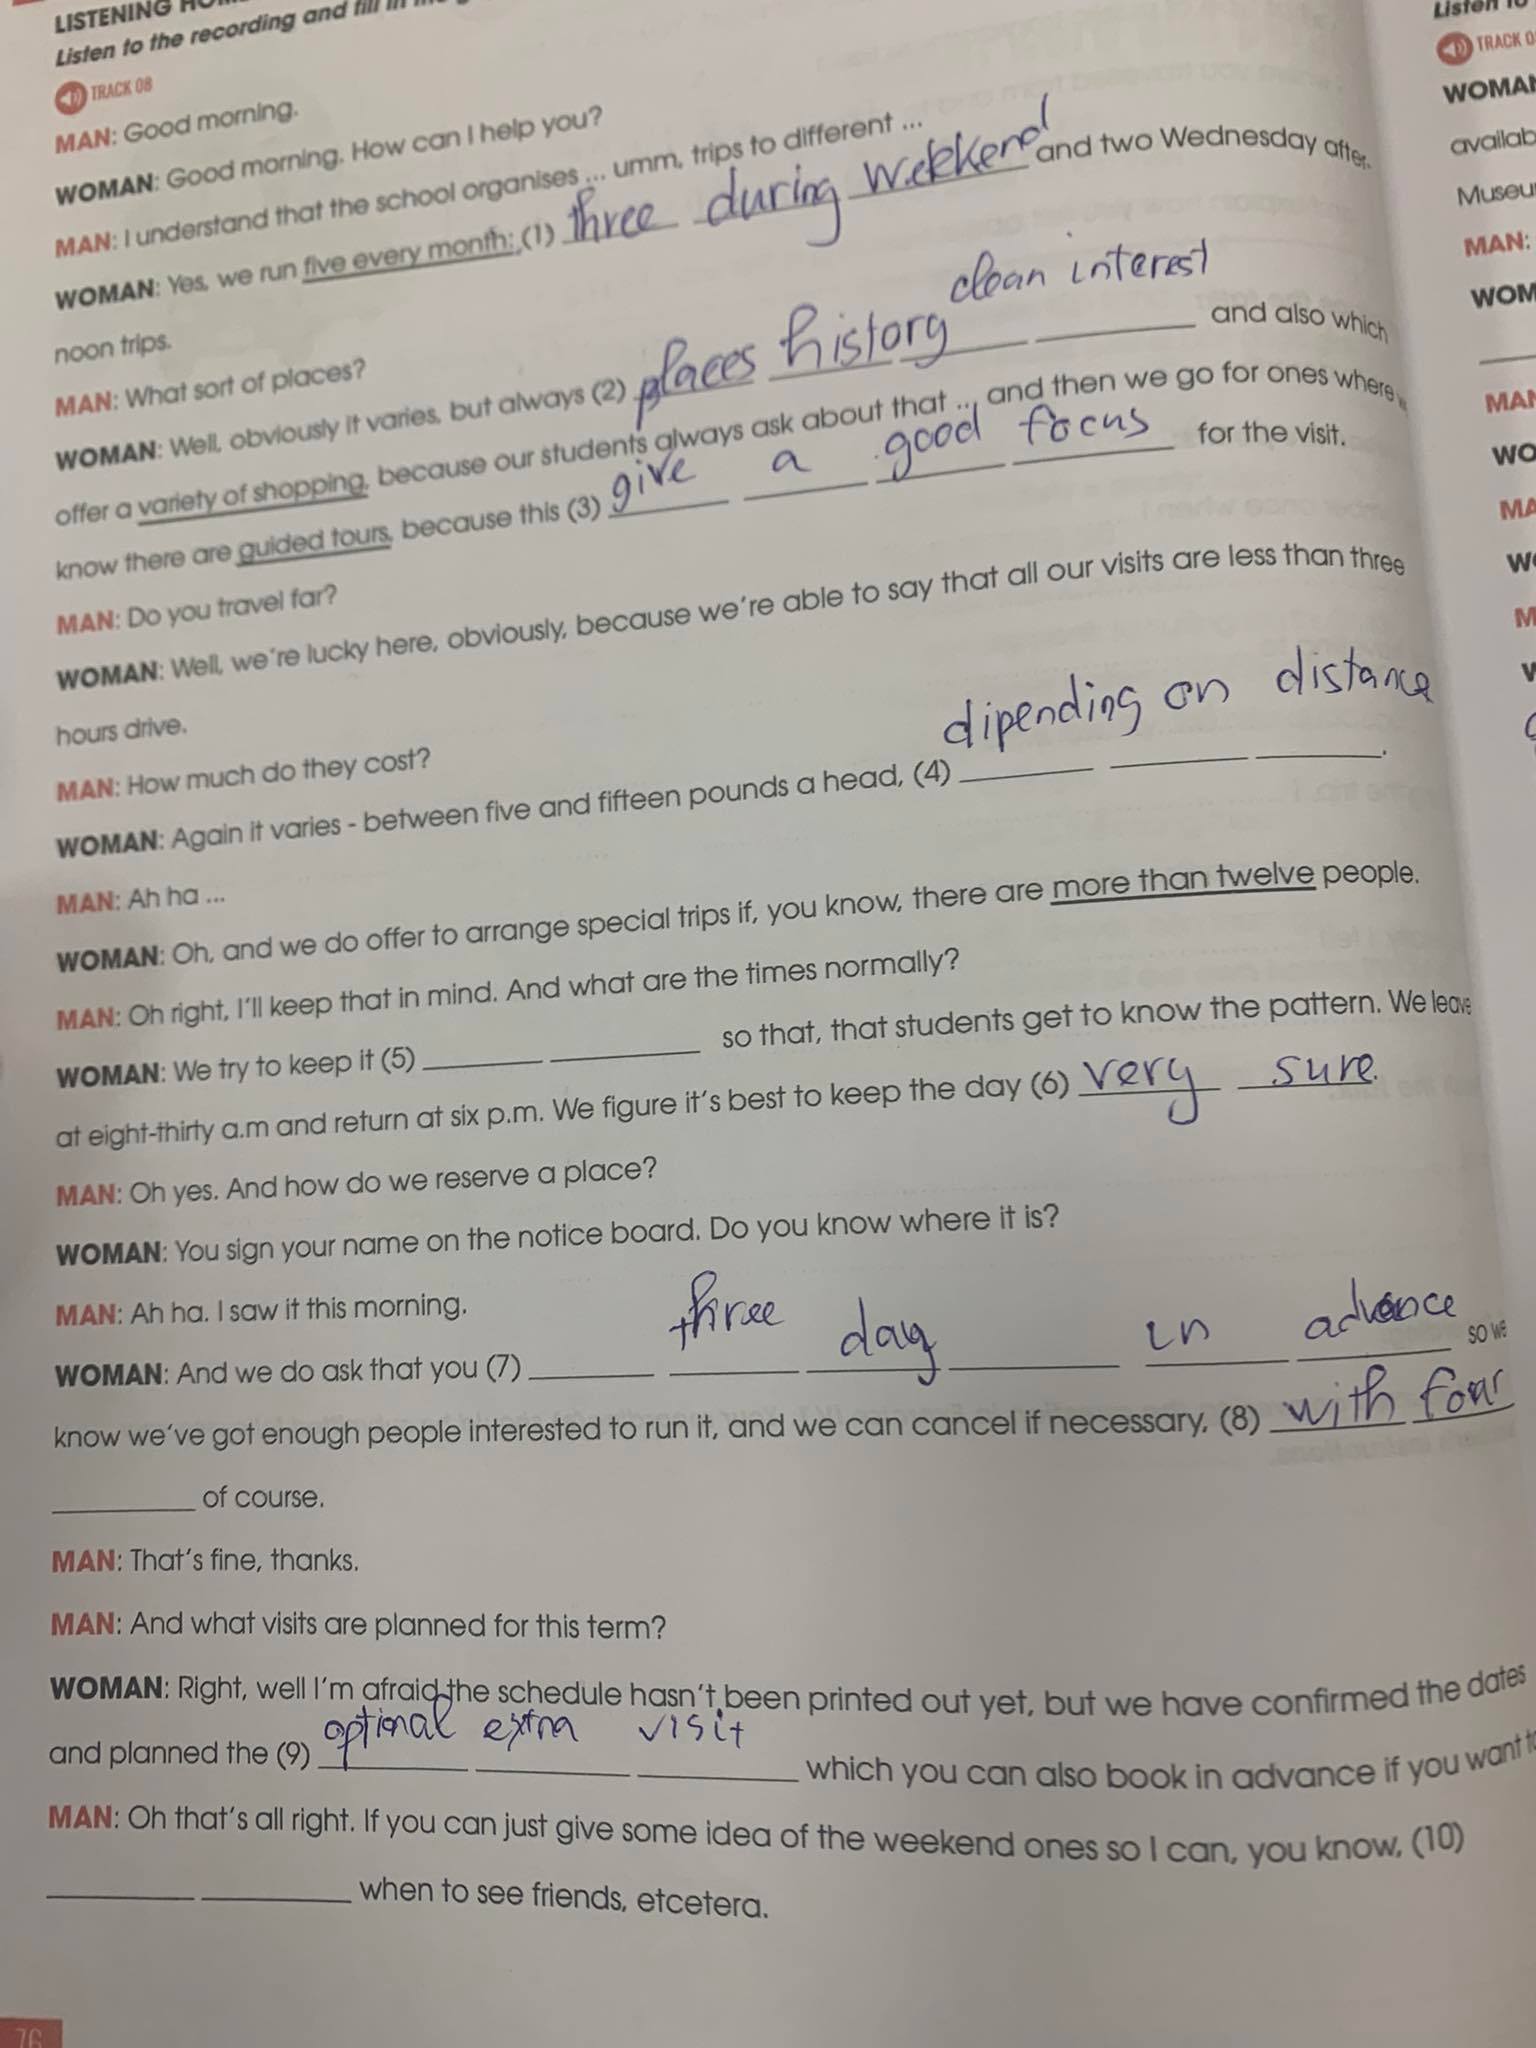 LISTENING
Listen to the recording and fill in
TRACK 08
MAN: Good morning.
WOMAN: Good morning. How can I help you?
MAN: I understand that the school organises ... umm, trips to different ...
WOMAN: Yes, we run five every month: (1) three during wekkend and two Wednesday after-
noon trips.
MAN: What sort of places?
clean interest
WOMAN: Well, obviously it varies, but always (2) places history and also which
offer a variety of shopping, because our students always ask about that ... and then we go for ones where
know there are guided tours, because this (3) give a good focus for the visit.
MAN: Do you travel far?
WOMAN: Well, we're lucky here, obviously, because we're able to say that all our visits are less than three
hours drive.
MAN: How much do they cost?
dipending on distance
WOMAN: Again it varies - between five and fifteen pounds a head, (4) ___ ___ ___.
MAN: Ah ha ...
WOMAN: Oh, and we do offer to arrange special trips if, you know, there are more than twelve people.
MAN: Oh right, I'll keep that in mind. And what are the times normally?
WOMAN: We try to keep it (5) ___ ___ so that, that students get to know the pattern. We leave
at eight-thirty a.m and return at six p.m. We figure it's best to keep the day (6) very sure.
MAN: Oh yes. And how do we reserve a place?
WOMAN: You sign your name on the notice board. Do you know where it is?
MAN: Ah ha. I saw it this morning.
WOMAN: And we do ask that you (7) ___ three day ___ in advance so we
know we've got enough people interested to run it, and we can cancel if necessary, (8) with four
___ of course.
MAN: That's fine, thanks.
MAN: And what visits are planned for this term?
WOMAN: Right, well I'm afraid the schedule hasn't been printed out yet, but we have confirmed the dates
and planned the (9) optional extra visit which you can also book in advance if you want to
MAN: Oh that's all right. If you can just give some idea of the weekend ones so I can, you know, (10)
___ ___ when to see friends, etcetera.
76
Listen to
TRACK 0
WOMAN
availab
Museu
MAN:
WOM
MAN
WO
MA
W
M